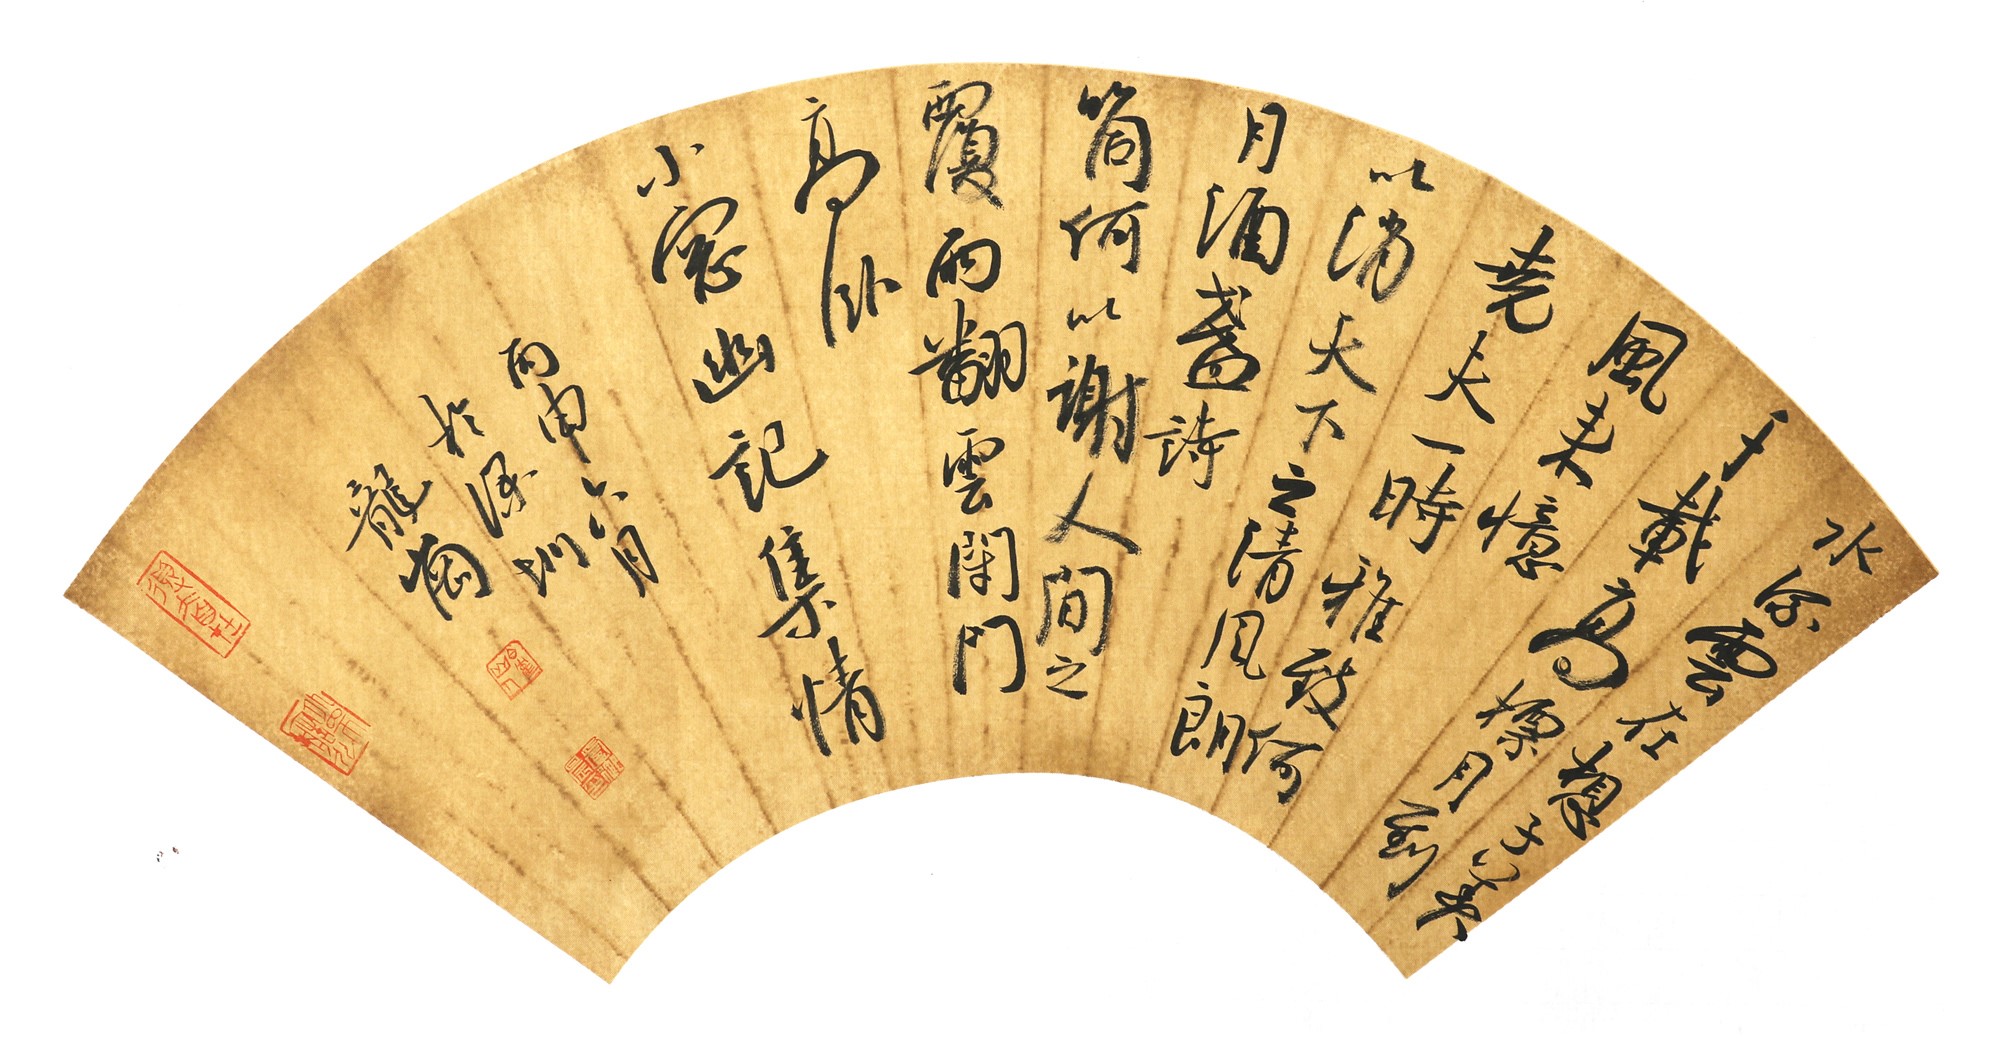 水流雲在想子美
千載高標月到
風来憶
堯夫一時雅致何
以消天下之清风朗
月酒盞詩
筒何以謝人間之
覆雨翻雲閉門
高臥
小窗幽記集情
丙申六月
於深圳
龍崗